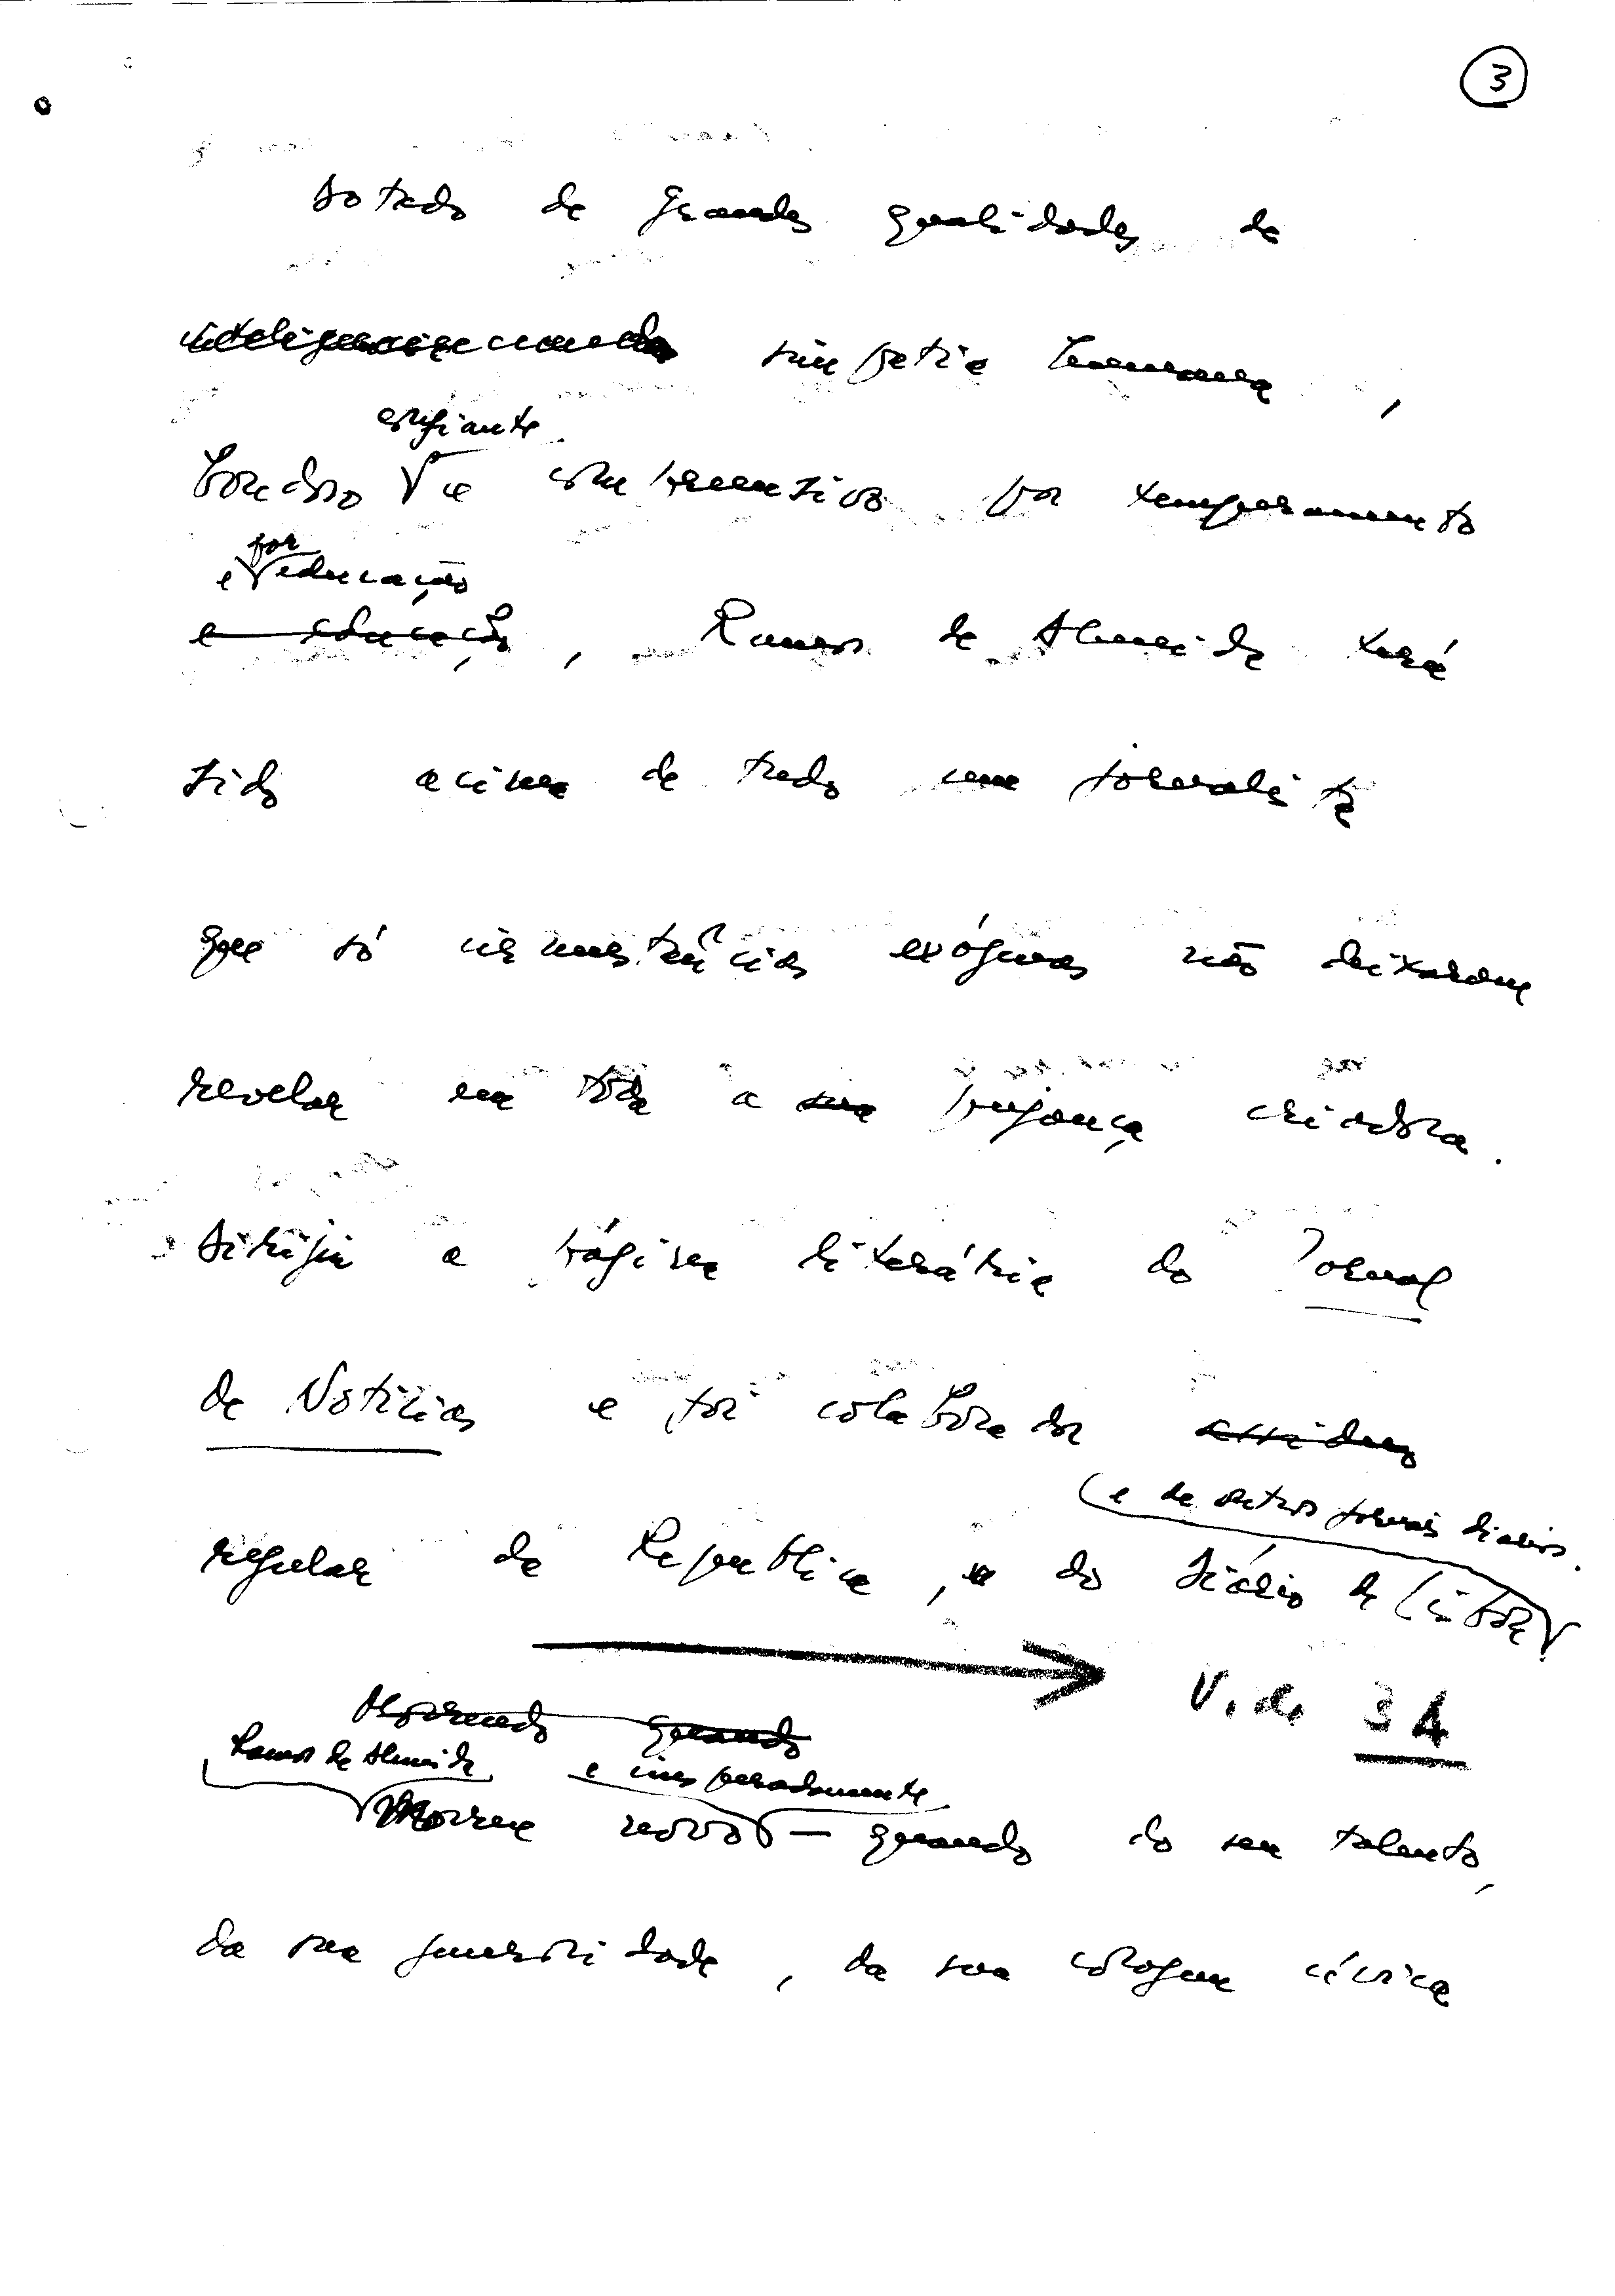 3
Dotado de grandes qualidades de
simpatia humana,
confiante
bondoso e compreensivo por temperamento
e por educação
e educação, Ramos de Almeida terá
sido acima de tudo um jornalista
que só circunstâncias exógenas não deixaram
revelar em toda a sua pujança criadora.
Dirigiu a página literária do Jornal
de Notícias e foi colaborador assíduo
e de outros jornais diários.
regular da República, e do Diário de Lisboa
Vide 3A
quando
Ramos de Almeida e inesperadamente
Morreu novo — quando do seu talento,
da sua generosidade, da sua coragem cívica